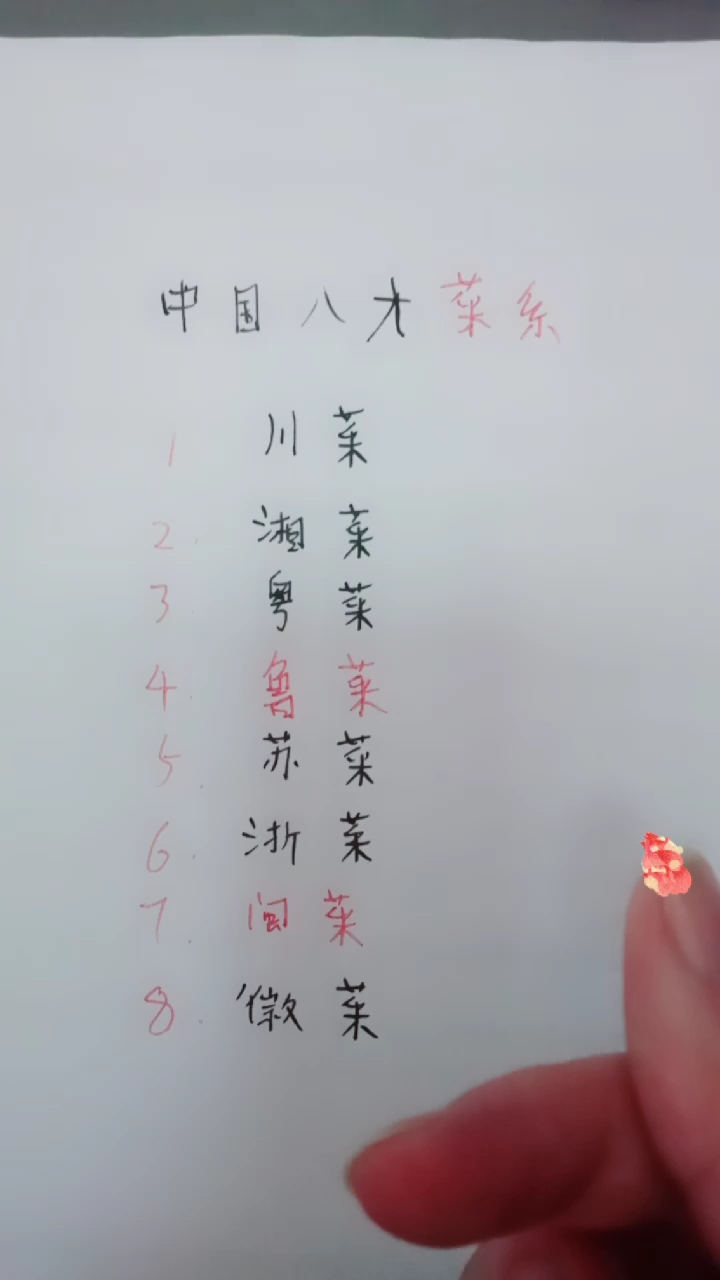 中国八大菜系
1 川菜
2. 湘菜
3 粤菜
4. 鲁菜
5. 苏菜
6. 浙菜
7. 闽菜
8. 徽菜